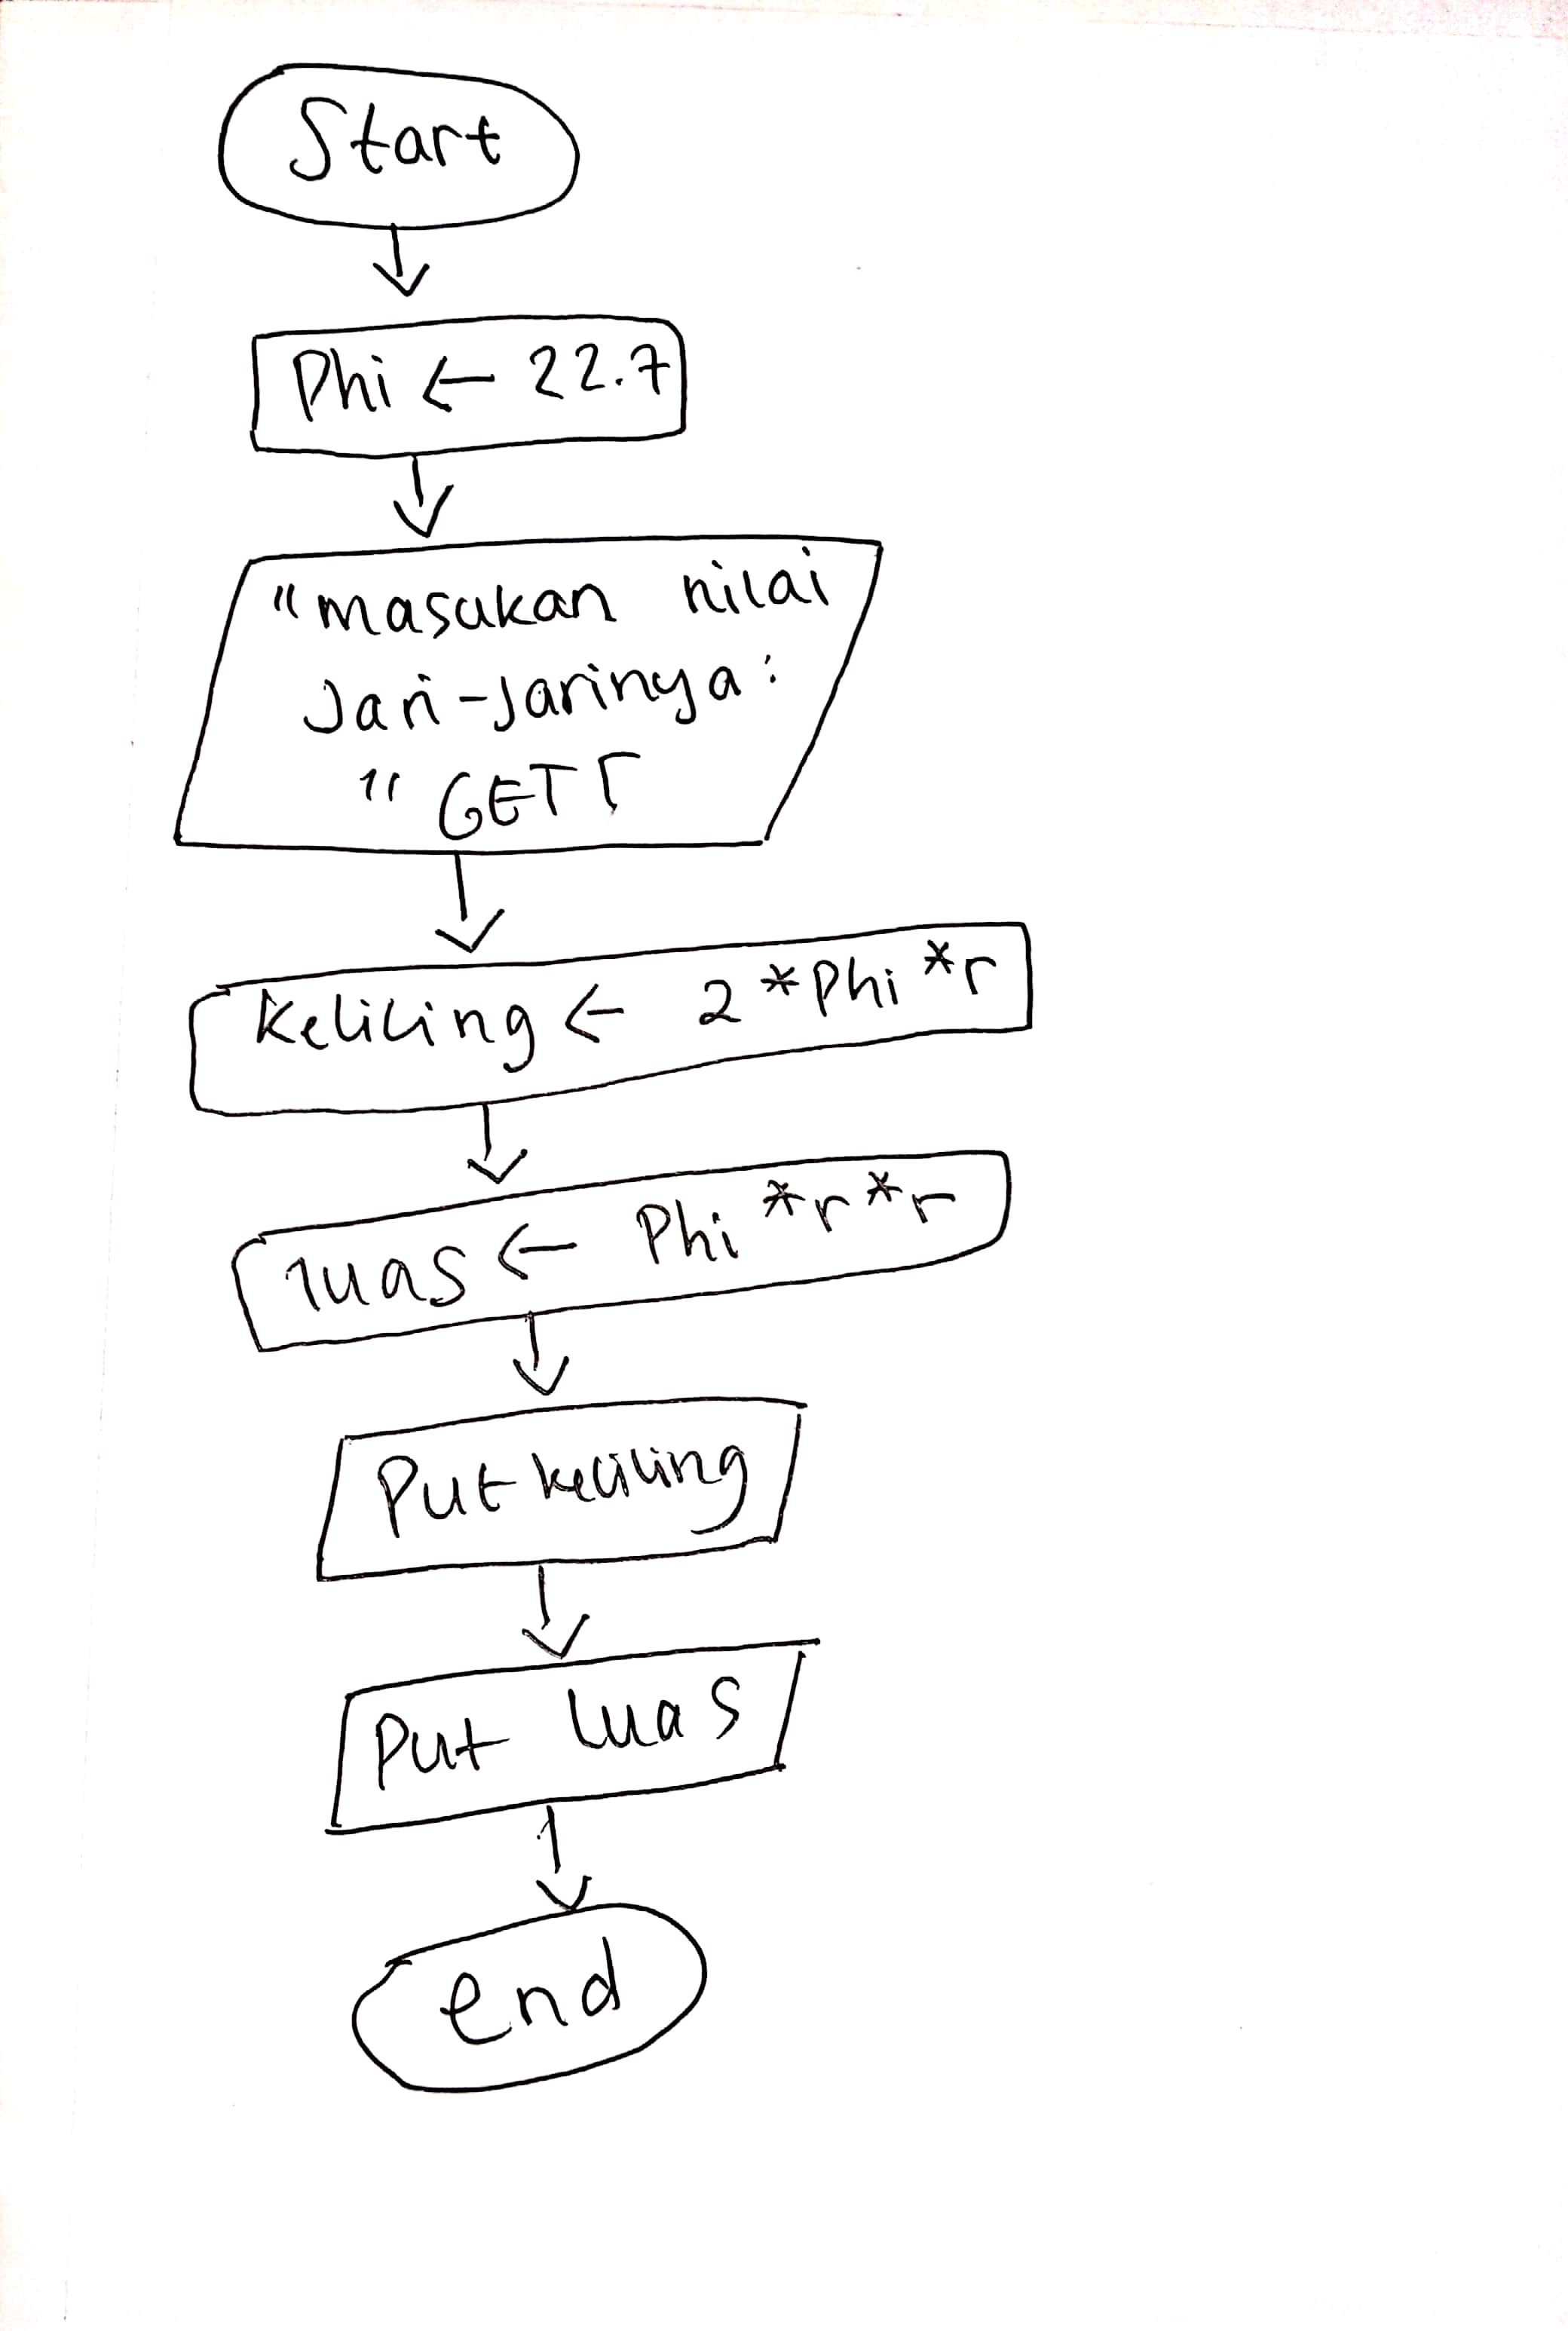 Start
Phi ← 22.7
"masukan nilai
Jari-Jarinya:
" GET r
Keliling ← 2 * Phi * r
luas ← Phi * r * r
Put keliling
Put luas
end